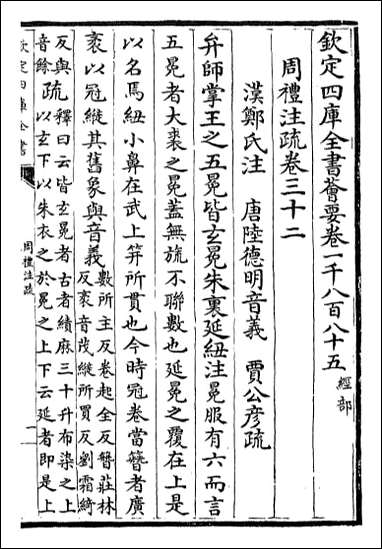 欽定四庫全書薈要卷一千八百八十五 經部
周禮注疏卷三十二
漢鄭氏注 唐陸德明音義 賈公彥疏
弁師掌王之五冕皆玄冕朱裏延紐注冕服有六而言
五冕者大裘之冕蓋無旒不聯數也延冕之覆在上是
以名焉紐小鼻在武上笄所貫也今時冠卷當簪者廣
袤以冠縰其舊象與音義
數所主反卷起全反簪莊林
反袤音茂縰所買反劉霜綺
反與
音餘
疏
釋曰云皆玄冕者古者績麻三十升布染之上
以玄下以朱衣之於冕之上下云延者即是上
欽定四庫全書
周禮注疏
一